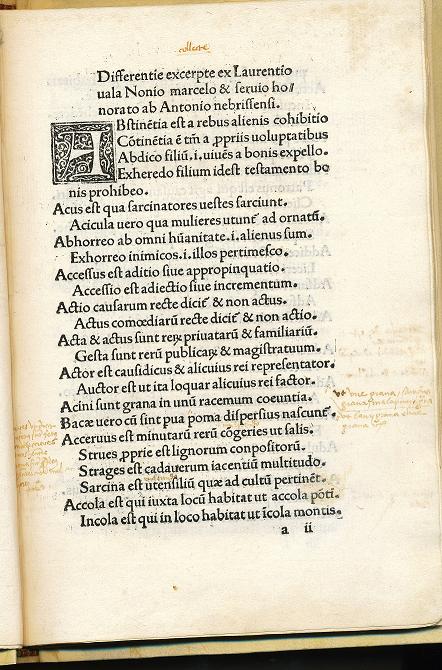 collecte
Differentie excerpte ex Laurentio
uala Nonio marcelo & seruio ho//
norato ab Antonio nebrissensi.
ABstinẽtia est a rebus alienis cohibitio
Cõtinẽtia ẽ tm̃ a ꝓpriis uoluptatibus
Abdico filiũ.i.uiuẽs a bonis expello.
Exheredo filium idest testamento bo
nis prohibeo.
Acus est qua sarcinatores uestes sarciunt.
Acicula uero qua mulieres utunt᷑ ad ornatũ.
Abhorreo ab omni hũanitate.i.alienus sum.
Exhorreo inimicos.i.illos pertimesco.
Accessus est aditio siue appropinquatio.
Accessio est adiectio siue incrementum.
Actio causarum recte dicit᷑ & non actus.
Actus comœdiarũ recte dicit᷑ & non actio.
Acta & actus sunt rerꝝ priuatarũ & familiariũ.
Gesta sunt rerũ publicaꝝ & magistratuum.
Actor est causidicus & alicuius rei repręsentator.
Auctor est ut ita loquar alicuius rei factor.
Acini sunt grana in unũ racemum coeuntia.
Bacæ uero cũ sint pua poma dispersius nascunt᷑.
Aceruus est minutarũ rerũ cõgeries ut salis.
Strues ꝓprie est lignorum conpositorũ.
Strages est cadauerum iacentiũ multitudo.
Sarcina est utensiliũ quæ ad cultũ pertinẽt.
Accola est qui iuxta locũ habitat ut accola põti.
Incola est qui in loco habitat ut ĩcola montis.
a ii